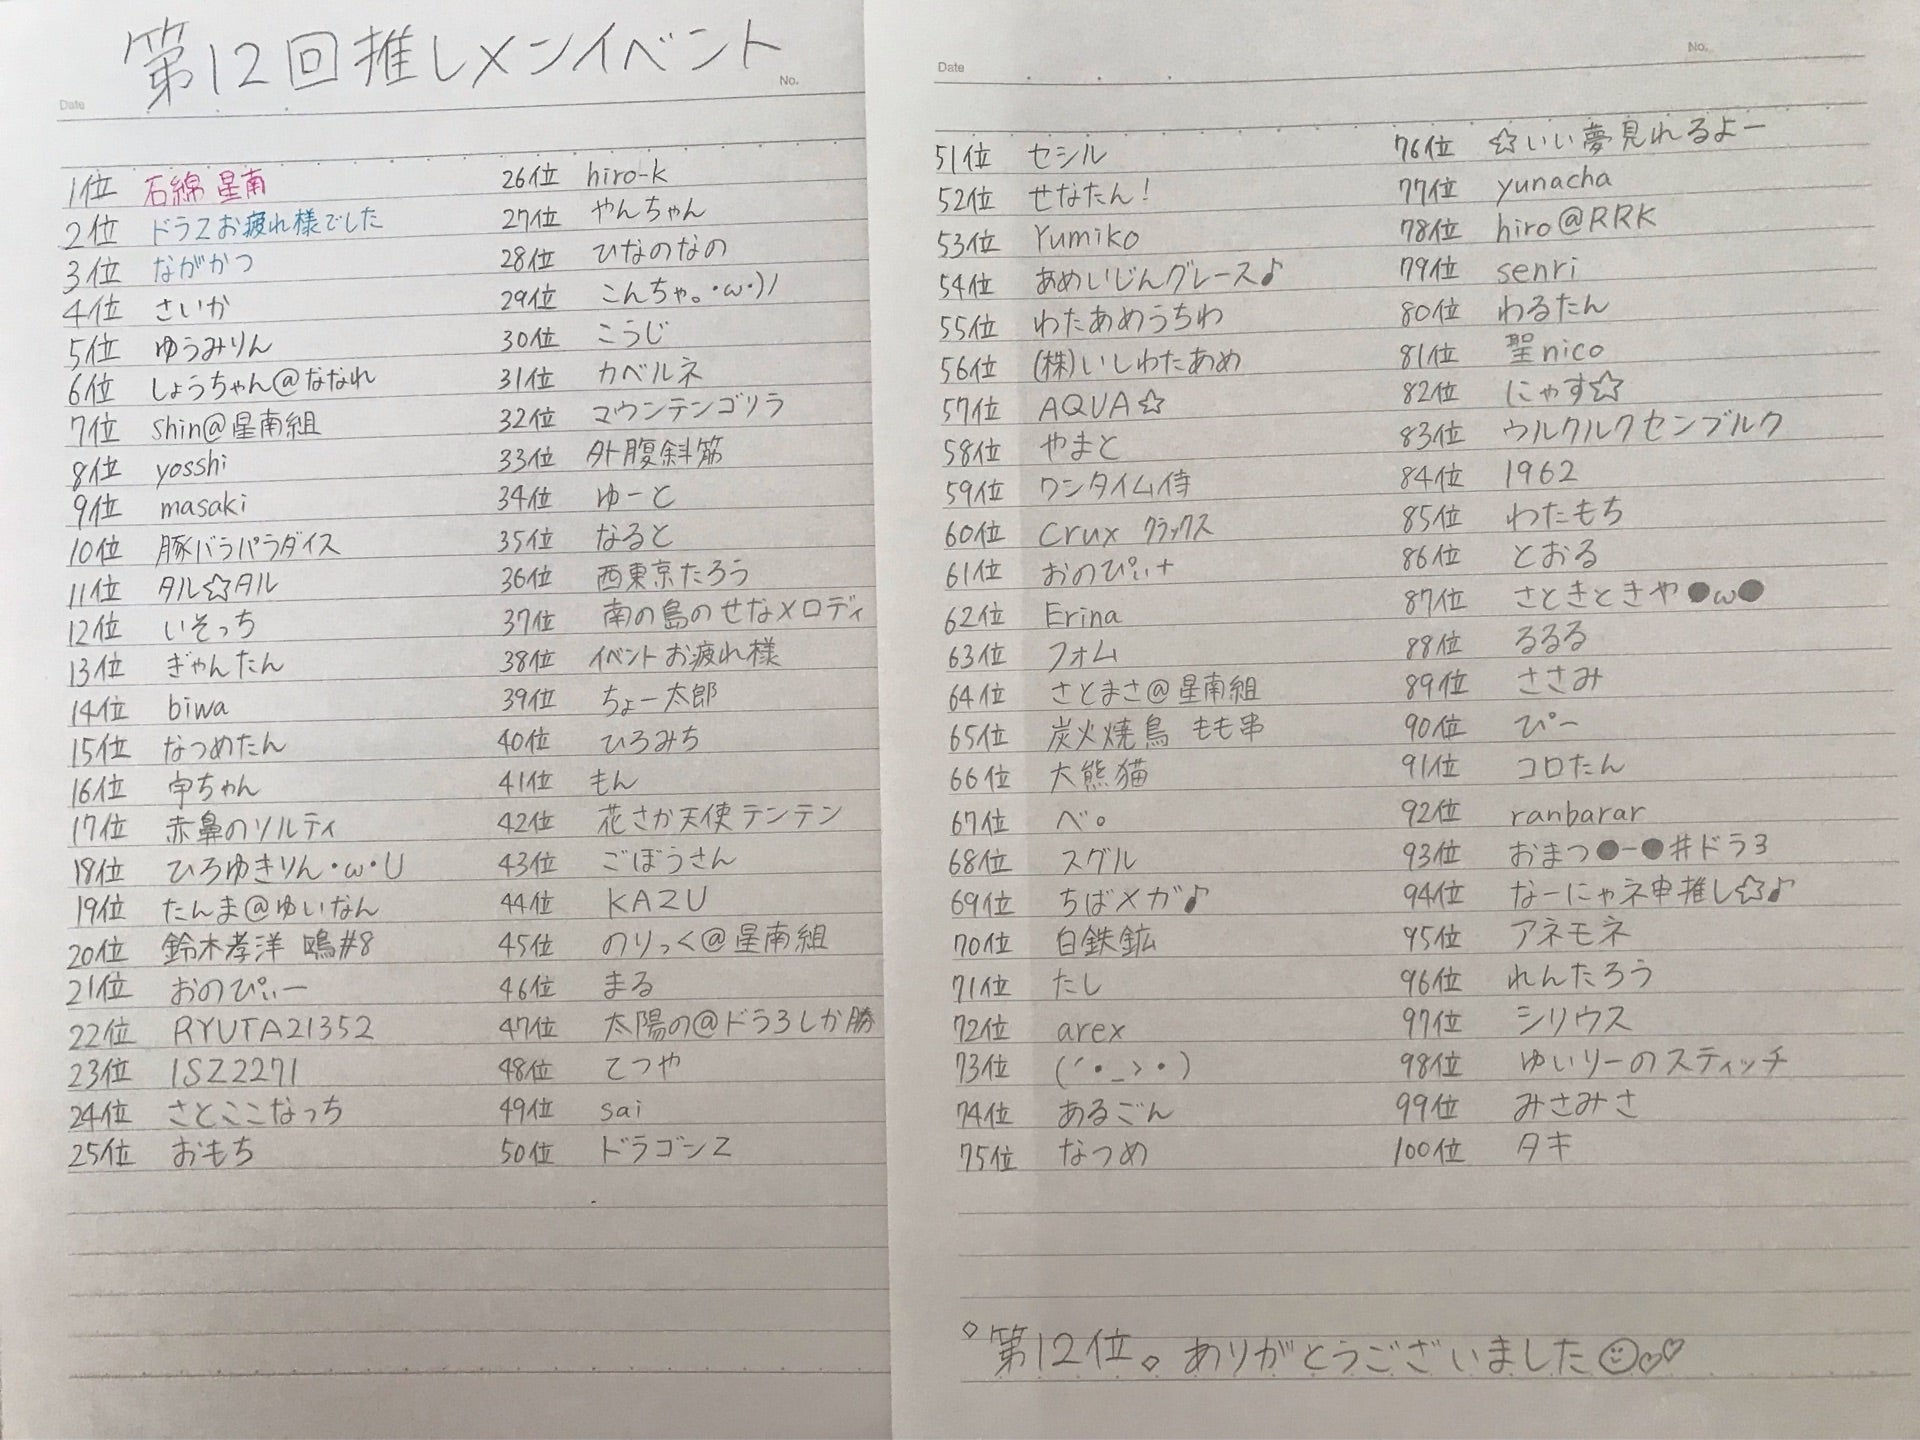 第12回推しメンイベント
Date
No.
1位 石綿 星南
2位 ドラZお疲れ様でした
3位 ながかつ
4位 さいか
5位 ゆうみりん
6位 しょうちゃん@ななれ
7位 shin@星南組
8位 yosshi
9位 masaki
10位 豚バラパラダイス
11位 タル☆タル
12位 いそっち
13位 ぎゃんたん
14位 biwa
15位 なつめたん
16位 宇ちゃん
17位 赤鼻のソルティ
18位 ひろゆきりん・ω・U
19位 たんま@ゆいなん
20位 鈴木孝洋 鴎#8
21位 おのぴぃー
22位 RYUTA21352
23位 ISZ2271
24位 さとここなっち
25位 おもち
26位 hiro-k
27位 やんちゃん
28位 ひなのなの
29位 こんちゃ。・ω・)ノ
30位 こうじ
31位 カベルネ
32位 マウンテンゴリラ
33位 外腹斜筋
34位 ゆーと
35位 なると
36位 西東京たろう
37位 南の島のせなメロディ
38位 イベントお疲れ様
39位 ちょー太郎
40位 ひろみち
41位 もん
42位 花さか天使テンテン
43位 ごぼうさん
44位 KAZU
45位 のりっく@星南組
46位 まる
47位 太陽の@ドラ3しか勝
48位 てつや
49位 sai
50位 ドラゴンZ
Date
No.
51位 セシル
52位 せなたん!
53位 Yumiko
54位 あめいじんグレース♪
55位 わたあめうちわ
56位 (株)いしわたあめ
57位 AQUA☆
58位 やまと
59位 ワンタイム侍
60位 Crux クラックス
61位 おのぴぃ+
62位 Erina
63位 フォム
64位 さとまさ@星南組
65位 炭火焼鳥 もも串
66位 大熊猫
67位 べ。
68位 スグル
69位 ちばメガ♪
70位 白鉄鉱
71位 たし
72位 arex
73位 (´・_>・)
74位 あるごん
75位 なつめ
76位 ☆いい夢見れるよー
77位 yunacha
78位 hiro@RRK
79位 senri
80位 わるたん
81位 聖nico
82位 にゃす☆
83位 ウルクルクセンブルク
84位 1962
85位 わたもち
86位 とおる
87位 さときときや●ω●
88位 るるる
89位 ささみ
90位 ぴー
91位 コロたん
92位 ranbarar
93位 おまつ●-●#ドラ3
94位 なーにゃネ申推し☆♪
95位 アネモネ
96位 れんたろう
97位 シリウス
98位 ゆいりーのスティッチ
99位 みさみさ
100位 タキ
◇第12位◇ ありがとうございました☺♡♡